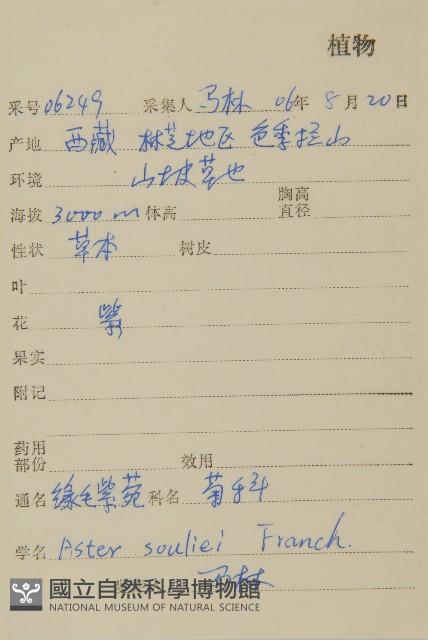 植物
采号 06249 采集人 马林 06年 8月20日
产地 西藏 林芝地区 色季拉山
环境 山坡草地
海拔 3000m 体高 胸高直径
性状 草本 树皮
叶
花 紫
果实
附记
药用部份 效用
通名 缘毛紫菀 科名 菊科
学名 Aster souliei Franch.
马林
國立自然科學博物館
NATIONAL MUSEUM OF NATURAL SCIENCE